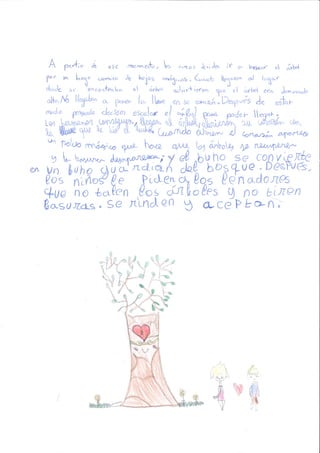 A partir de ese momento, los niños deciden ir a buscar el árbol
por un largo camino de hojas mágicas. Cuando llegaron al lugar
donde se encontraba el árbol advirtieron que el árbol era demasiado
alto. No llegaban a poner la llave en su corazón. Después de estar
mucho pensando deciden escalar el árbol para poder llegar.
Los
la llave que le
Cuando abren el corazón aparece
un polvo mágico que hace que los árboles se recuperen
y la basura desaparezca, y el buho se convierte
en un buho guardian del bosque. Después,
los niños le piden a los leñadores
que no talen los árboles y no tiren
basuras. Se rinden y aceptan.